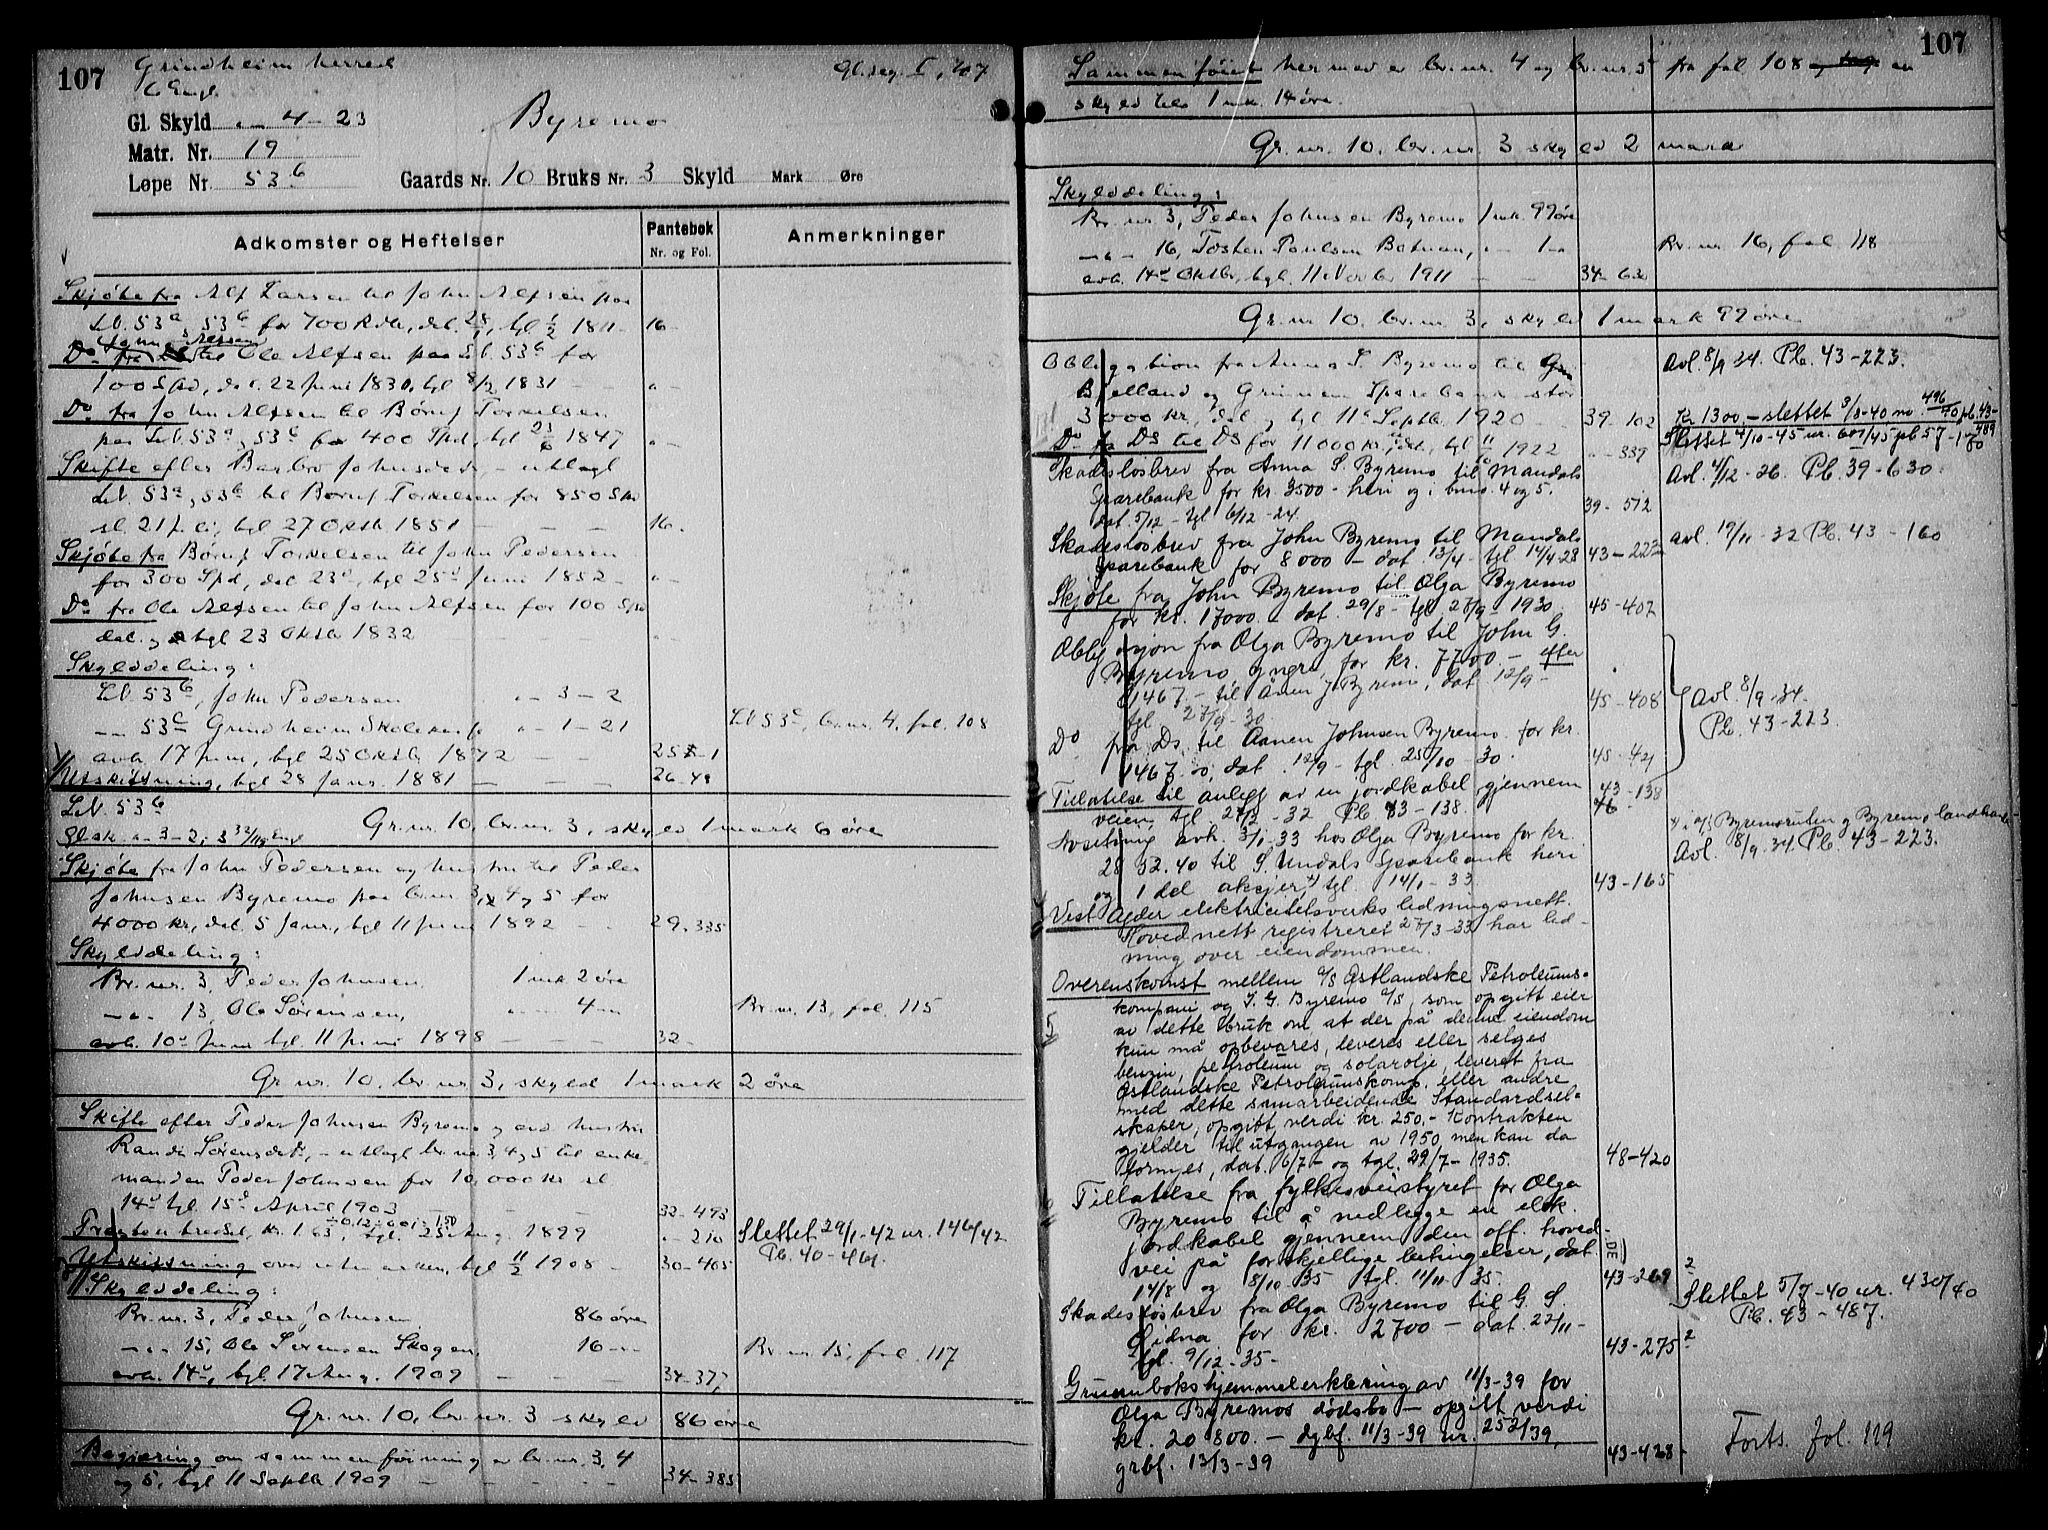 107
Grindheim herred
Gl. reg. I, 107
Gl. Skyld " - 4 - 23
Byremo
Matr. Nr. 19
Løpe Nr. 53 b
Gaards Nr. 10 Bruks Nr. 3 Skyld Mark Øre
Adkomster og Heftelser
Pantebok
Nr. og Fol.
Anmerkninger
Skjøte fra Alf Larsen til John Alfsen paa
Lb. 53a, 53b for 700 Rdlr, dat. 28/1, tgl. 1/2 1811 - 16 -
John Alfsen
Do fra til Ole Alfsen paa Lb. 53b for
100 Spd, dat. 22 Juni 1830, tgl 8/2 1831 - " -
Do fra John Alfsen til Børuf Torkelsen
paa Lb. 53a, 53b for 400 Spd, tgl 23/6 1847 " -
Skifte efter Barbro Johnsdatr, - utlagt
Lb. 53a, 53b til Børuf Torkelsen for 850 Spd
sl. 21 juli, tgl 27 Oktb 1851 - - - 16.
Skjøte fra Børuf Torkelsen til John Pedersen
for 300 Spd, dat. 23d, tgl 25d Juni 1852 - " -
Do fra Ole Alfsen til John Alfsen for 100 Spd
dat. og tgl 23 Oktb 1832 " -
Skylddeling:
Lb. 53b, John Pedersen " - 3 - 2
- " - 53c Grindheim Skolekasse " - 1 - 21 Lb. 53c, b.nr. 4, fol. 108
avh. 17 juni, tgl 25 Oktb 1872 - - 25-1
Utskiftning, tgl 28 Janr. 1881 - - - 26-48
Lb. 53b
Gl. sk. " - 3 - 2; Gr. nr. 10, br. nr. 3, skyld 1 mark 6 øre
Skjøte fra John Pedersen og hustru til Peder
Johnsen Byremo paa b.nr 3, 4 og 5 for
4000 kr, dat. 5 Janr, tgl 11 juni 1892 - - 29-335
Skylddeling:
Br. nr. 3, Peder Johnsen 1 mk 2 øre
- " - 13, Ole Sørensen, " - 4 - " Br. nr. 13, fol. 115
avh. 10d juni tgl 11 juni 1898 - - - 32 -
Gr. nr. 10, br. nr. 3, skyld 1 mark 2 øre
Skifte efter Peder Johnsen Byremo og avd hustru
Randi Sørensdtr, - utlagt br. nr 3, 4 og 5 til enke-
manden Peder Johnsen for 10,000 kr sl
14d tgl 15d April 1903 - - - 32-493
kr. 1.63, tgl. 25 Aug 1899 " - 210 Slettet 29/1-42 nr. 146/42
Pb. 40-461.
Utskiftning over utmarken, tgl 11/2 1908 - 30-405
Skylddeling:
Br. nr. 3, Peder Johnsen 86 øre
- " - 15, Ole Sørensen Skogen, 16 - " - Br. nr. 15, fol. 117
avh. 14d, tgl. 17 Aug. 1909 - - - 34-37
Gr. nr. 10, br. nr. 3 skyld 86 øre
Begjæring om sammenføining av br. nr. 3, 4
og 5, tgl 11 Septb 1909 - - - 34-385
107
Sammenføiet hermed er br. nr. 4 og br. nr. 5 fra fol 108 av
skyld tils 1 mk. 14 øre.
Gr. nr. 10, br. nr. 3 skyld 2 mark
Skylddeling:
Br. nr 3, Peder Johnsen Byremo 1 mk. 99 øre
- " - 16, Tosten Poulsen Batman, " - 1 - " Br. nr 16, fol. 118
avh. 14d Oktbr, tgl. 11 Novbr 1911 - - 34-63
Gr. nr 10, br. nr. 3, skyld 1 mark 99 øre
Obligation fra Anna S. Byremo til Avl. 8/9 34. Pb. 43-223.
Bjelland og Grinnem Sparebank stor
3000 kr, dat. tgl. 11te Septb. 1920 39-102 Kr 1300 - slettet 3/8-40 no 496/40 pb. 43-489
Do fra Ds til Ds for 11000 kr, dat, tgl 11/11 1922 " - 339 Slettet 4/10-45 nr. 607/45 pb 57-170
Skadesløsbrev fra Anna S. Byremo til Mandals Avl. 4/12-26. Pb. 39-630.
Sparebank for kr. 3500 - heri og i bnr. 4 og 5.
dat. 5/12 - tgl 6/12-24. 39-572
Skadesløsbrev fra John Byremo til Mandals avl. 19/11-32 Pb. 43-160
Sparebank for 8000 - dat. 13/4 - tgl 14/4 28 43-223
Skjøte fra John Byremo til Olga Byremo
for kr. 17000 - dat. 29/8 - tgl 27/9 - 1930 45-407
Obligasjon fra Olga Byremo til John G.
Byremo yngre for kr. 7700. - efter
1467. - til Aanen J. Byremo, dat 12/9 -
tgl. 27/9-30. 45-408 Avl. 8/9-34.
Pb. 43-223.
Do fra Ds til Aanen Johnsen Byremo for kr.
1467.00, dat. 12/9 - tgl. 25/10-30. 45-421
Tillatelse til anlegg av en jordkabel gjennem 43-138
veien, tgl. 27/2-32 Pb 43-138.
Avsetning avh. 3/1-33 hos Olga Byremo for kr. i A/S Byremoruten og Byremo landhandel
28 32.40 til S. Undals Sparebank heri Avl. 8/9-34. Pb. 43-223.
og 1 del aksjer, tgl. 14/1-33 43-165
Vest Agder elektricitetsverks ledningsnett.
Hovednett registreret 27/3-33 har led-
ning over eiendommen.
Overenskomst mellem A/S Østlandske Petroleums-
kompani og J. G. Byremo A/S, som opgitt eier
av dette bruk om at der på denne eiendom
kun må opbevares, leveres eller selges
benzin, petroleum og solarolje, leveret fra
Østlandske Petroleumskomp. eller andre
med dette samarbeidende Standardsel-
skaper, opgitt verdi kr. 250.- Kontrakten
gjelder til utgangen av 1950, men kan da
fornyes, dat. 6/7 - og tgl. 29/7 - 1935. 48-420
Tillatelse fra fylkesveistyret for Olga
Byremo til å nedlegge en elek.
jordkabel gjennem den off. hoved-
vei på forskjellige betingelser, dat.
14/8 og 8/10-35 tgl. 11/11-35. 43-269
Skadesløsbrev fra Olga Byremo til G. S. Slettet 5/7-40 nr. 430/40
Lidna for kr. 2700 - dat. 22/11 - Pb. 43-487.
tgl. 9/12-35 - 43-275
Grunnbokshjemmelerklæring av 11/3-39 for
Olga Byremos dødsbo - opgitt verdi
kr. 20 800. - dgbf. 11/3-39 nr. 252/39,
grbf. 13/3-39 43-428 Forts. fol. 119